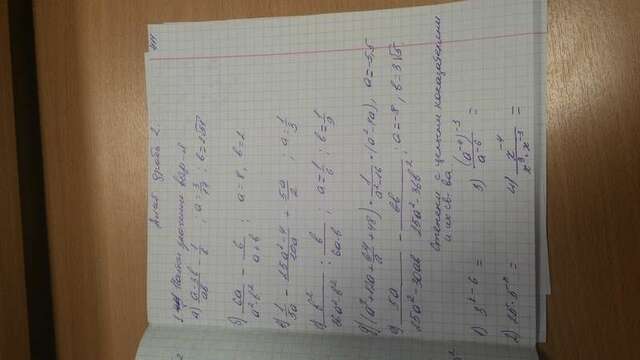 Алгеб. дробь 2.
1. Найти значение выр-я
а) (a-3b)/(ab) - 1/b ; a = ; b =
б) 6a/(a²-b²) - 6/(a+b) ; a=8, b=2
в) 1/(5a) - (25a²-4)/(20a) + 5a/2 ; a=1/3
г) b²/(36a²-b²) : b/(6a-b) ; a=1/6 ; b=1/9
д) (a²+12a+64/a+48) · 1/(a²-16) · (a²-4a), a=-5,5
е) 5a/(25a²-30ab) - 6b/(25a²-36b²) ; a=-8, b=3√5
Степени с целыми показателями
и их св-ва
1) =
3) (a⁻⁴)⁻³/a⁻⁶ =
2) =
4) x⁻⁴/(x⁹·x⁻³) =